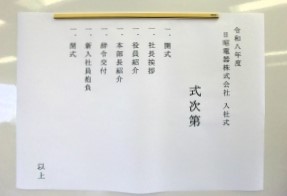 令和八年度
日昭電器株式会社 入社式
式次第
一、開式
一、社長挨拶
一、役員紹介
一、本部長紹介
一、辞令交付
一、新入社員抱負
一、閉式
以上